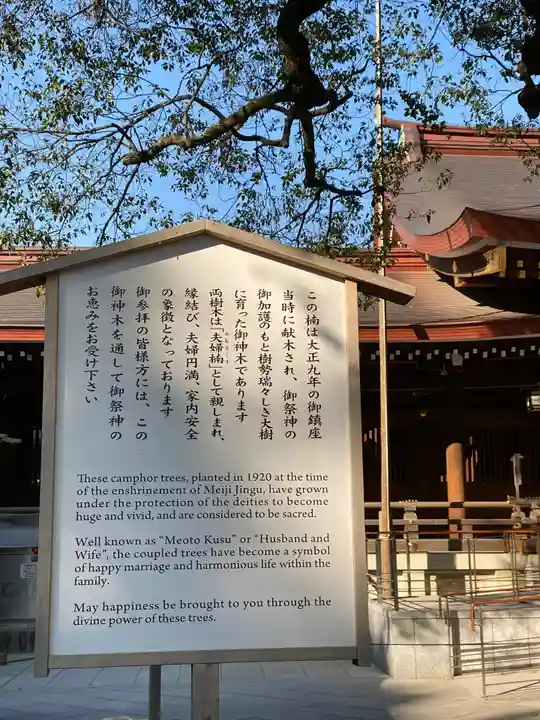 この楠は大正九年の御鎮座
当時に献木され、御祭神の
御加護のもと樹勢瑞々しき大樹
に育った御神木であります
両樹木は「夫婦楠」として親しまれ、
めおとくす
縁結び、夫婦円満、家内安全
の象徴となっております
御参拝の皆様方には、この
御神木を通して御祭神の
お恵みをお受け下さい
These camphor trees, planted in 1920 at the time
of the enshrinement of Meiji Jingu, have grown
under the protection of the deities to become
huge and vivid, and are considered to be sacred.
Well known as “Meoto Kusu” or “Husband and
Wife”, the coupled trees have become a symbol
of happy marriage and harmonious life within the
family.
May happiness be brought to you through the
divine power of these trees.